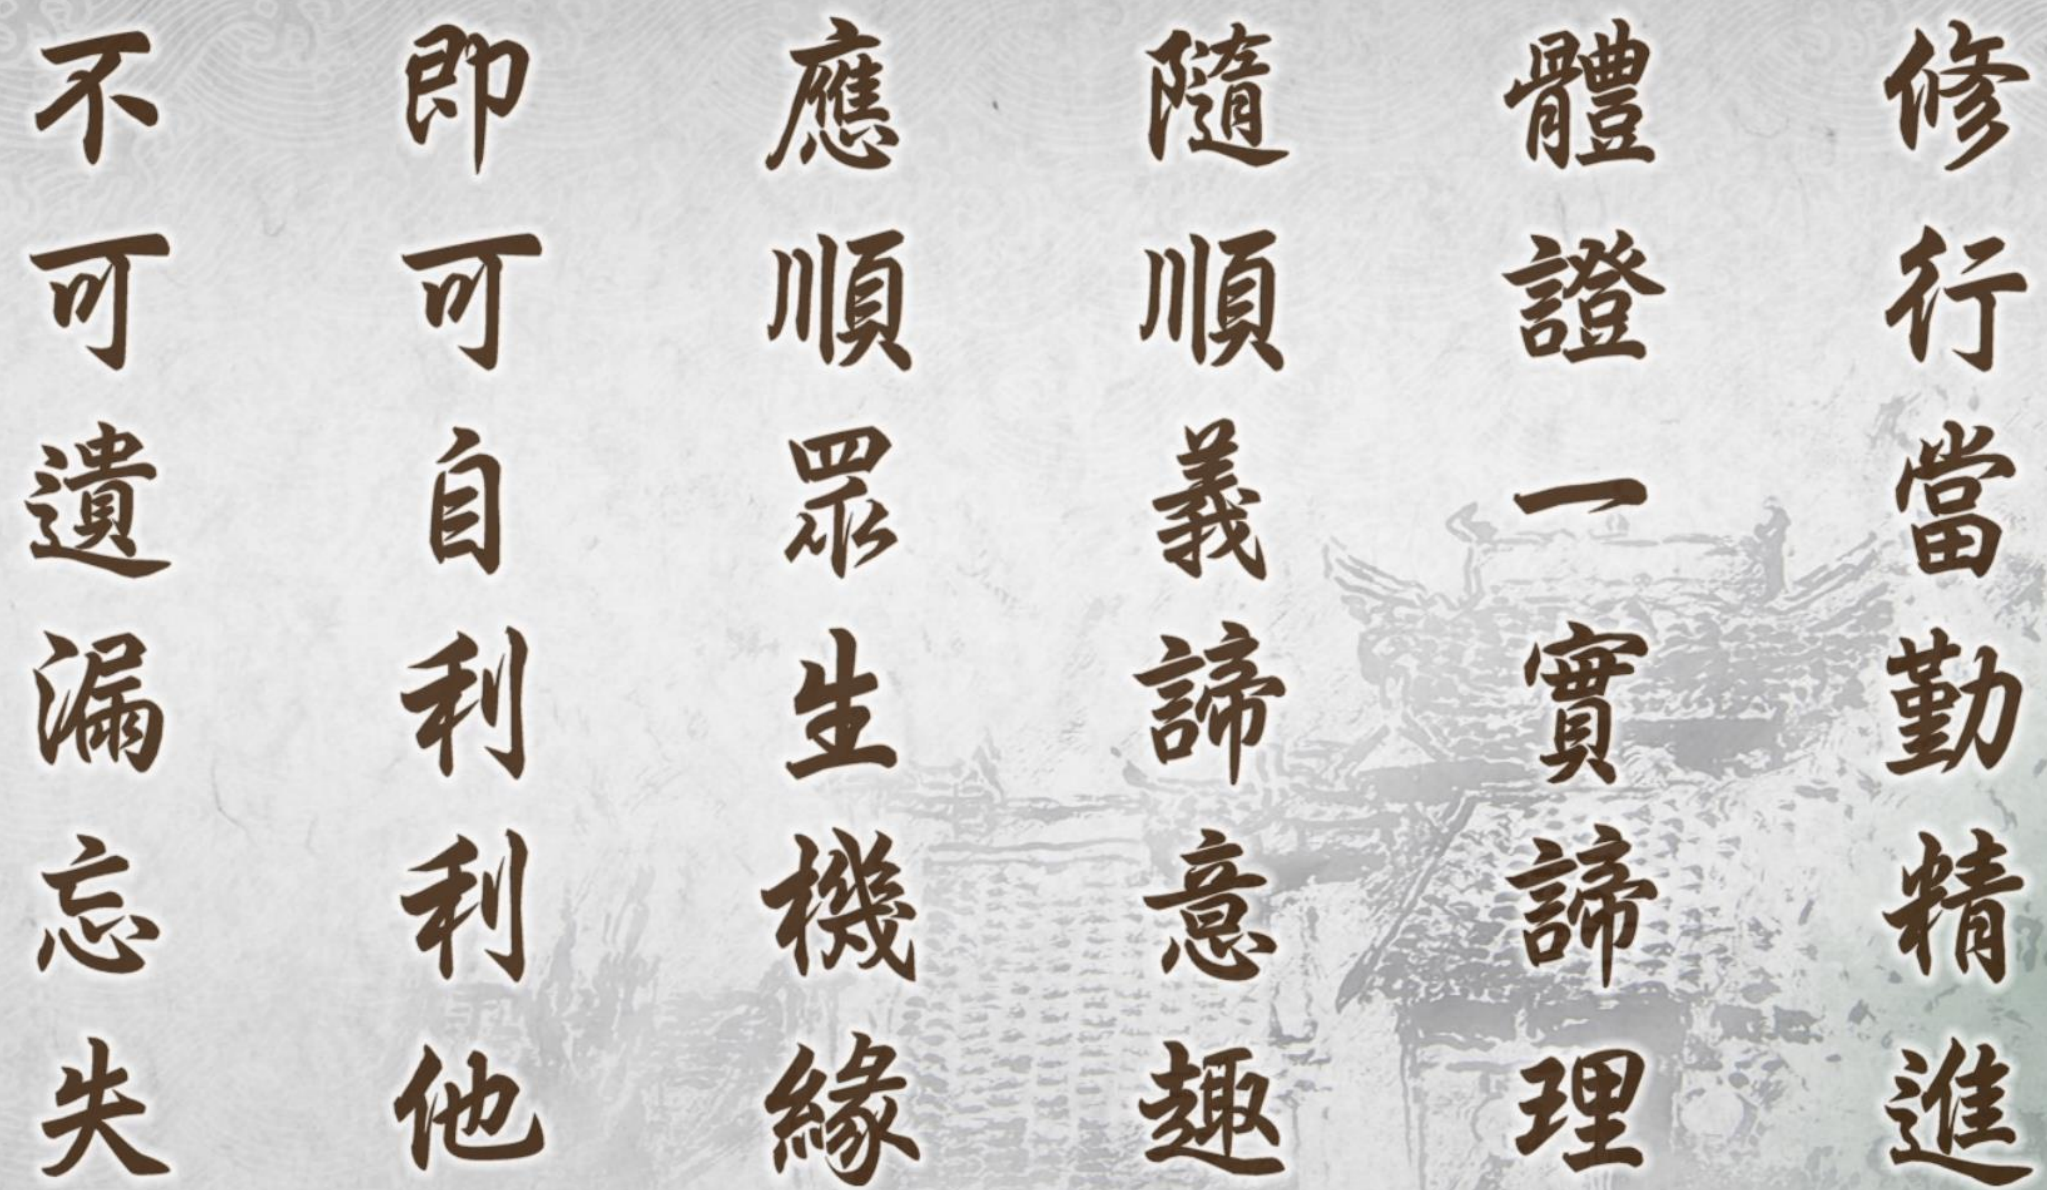 修行當勤精進
體證一實諦理
隨順義諦意趣
應順眾生機緣
即可自利利他
不可遺漏忘失